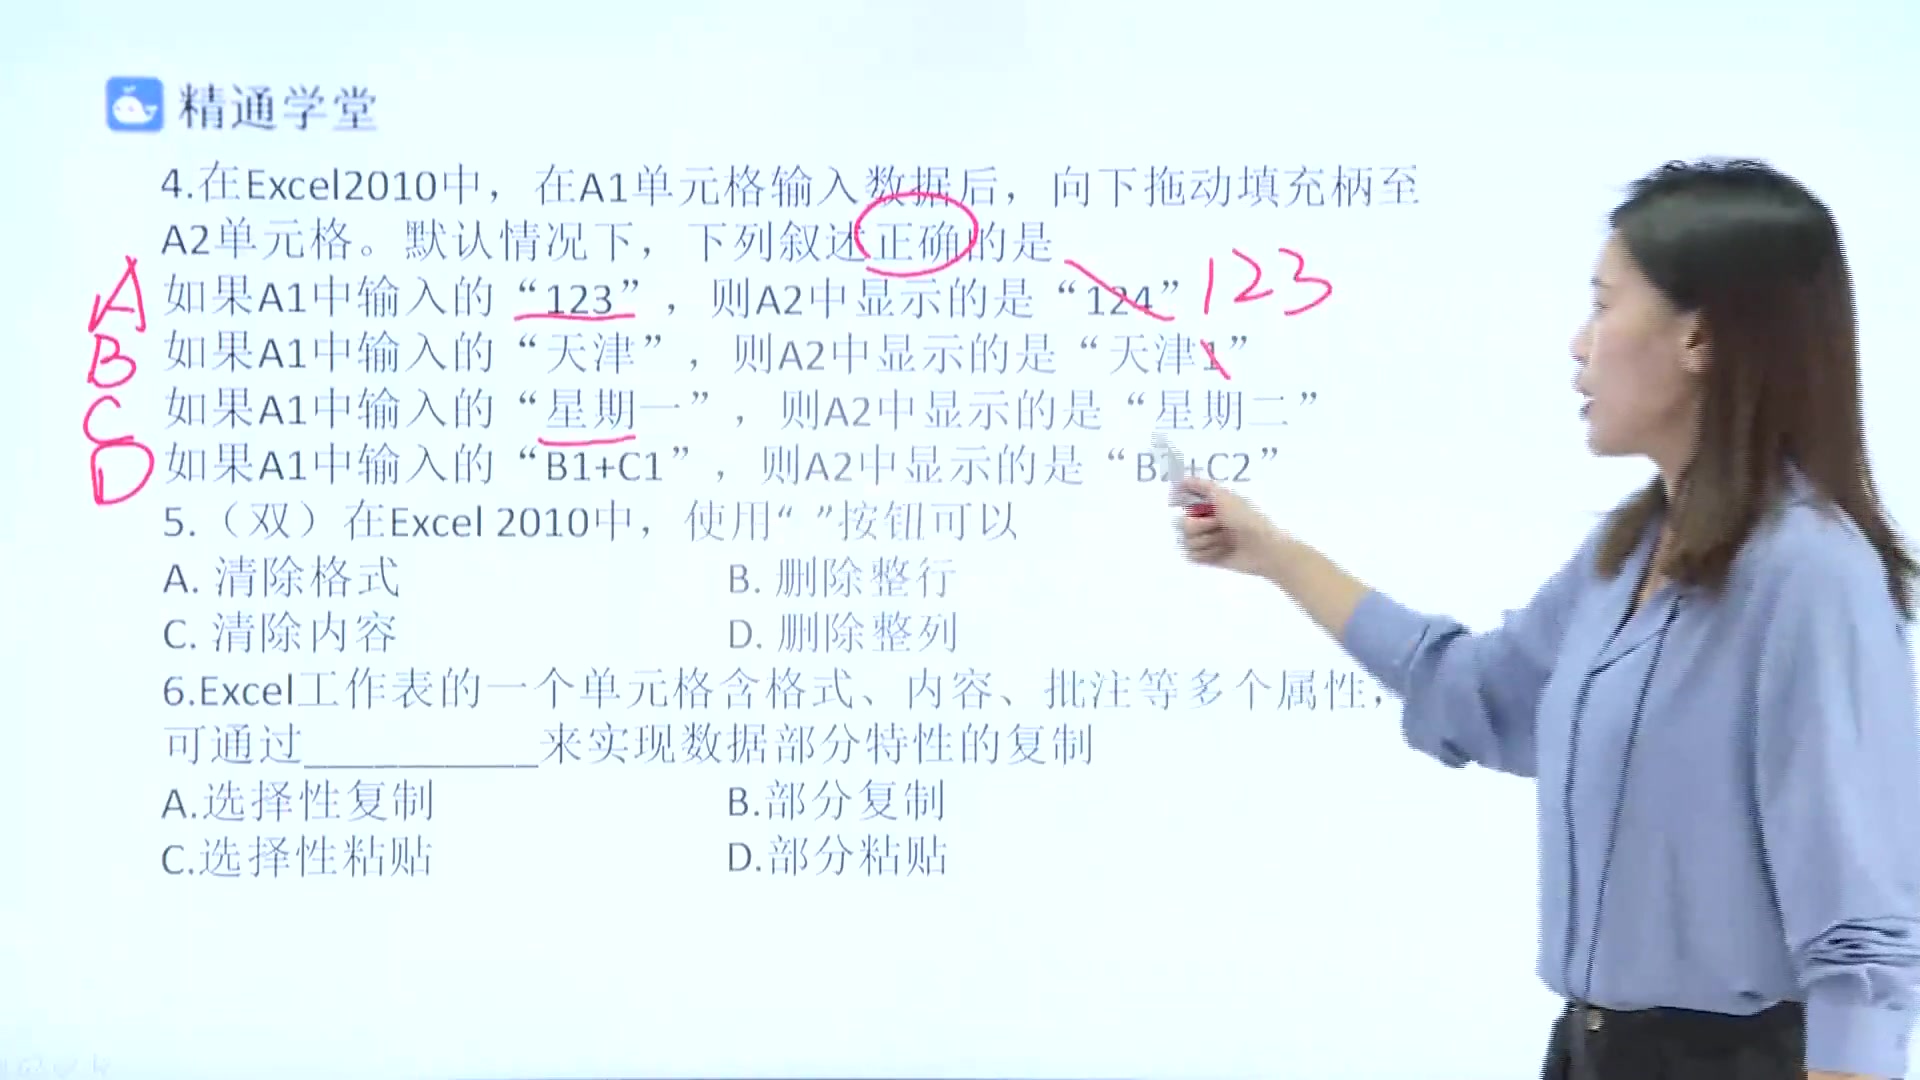 精通学堂
4.在Excel2010中，在A1单元格输入数据后，向下拖动填充柄至
A2单元格。默认情况下，下列叙述正确的是
A 如果A1中输入的“123”，则A2中显示的是“124” 123
B 如果A1中输入的“天津”，则A2中显示的是“天津1”
C 如果A1中输入的“星期一”，则A2中显示的是“星期二”
D 如果A1中输入的“B1+C1”，则A2中显示的是“B2+C2”
5.（双）在Excel 2010中，使用“ ”按钮可以
A. 清除格式 B. 删除整行
C. 清除内容 D. 删除整列
6.Excel工作表的一个单元格含格式、内容、批注等多个属性，
可通过__________来实现数据部分特性的复制
A.选择性复制 B.部分复制
C.选择性粘贴 D.部分粘贴